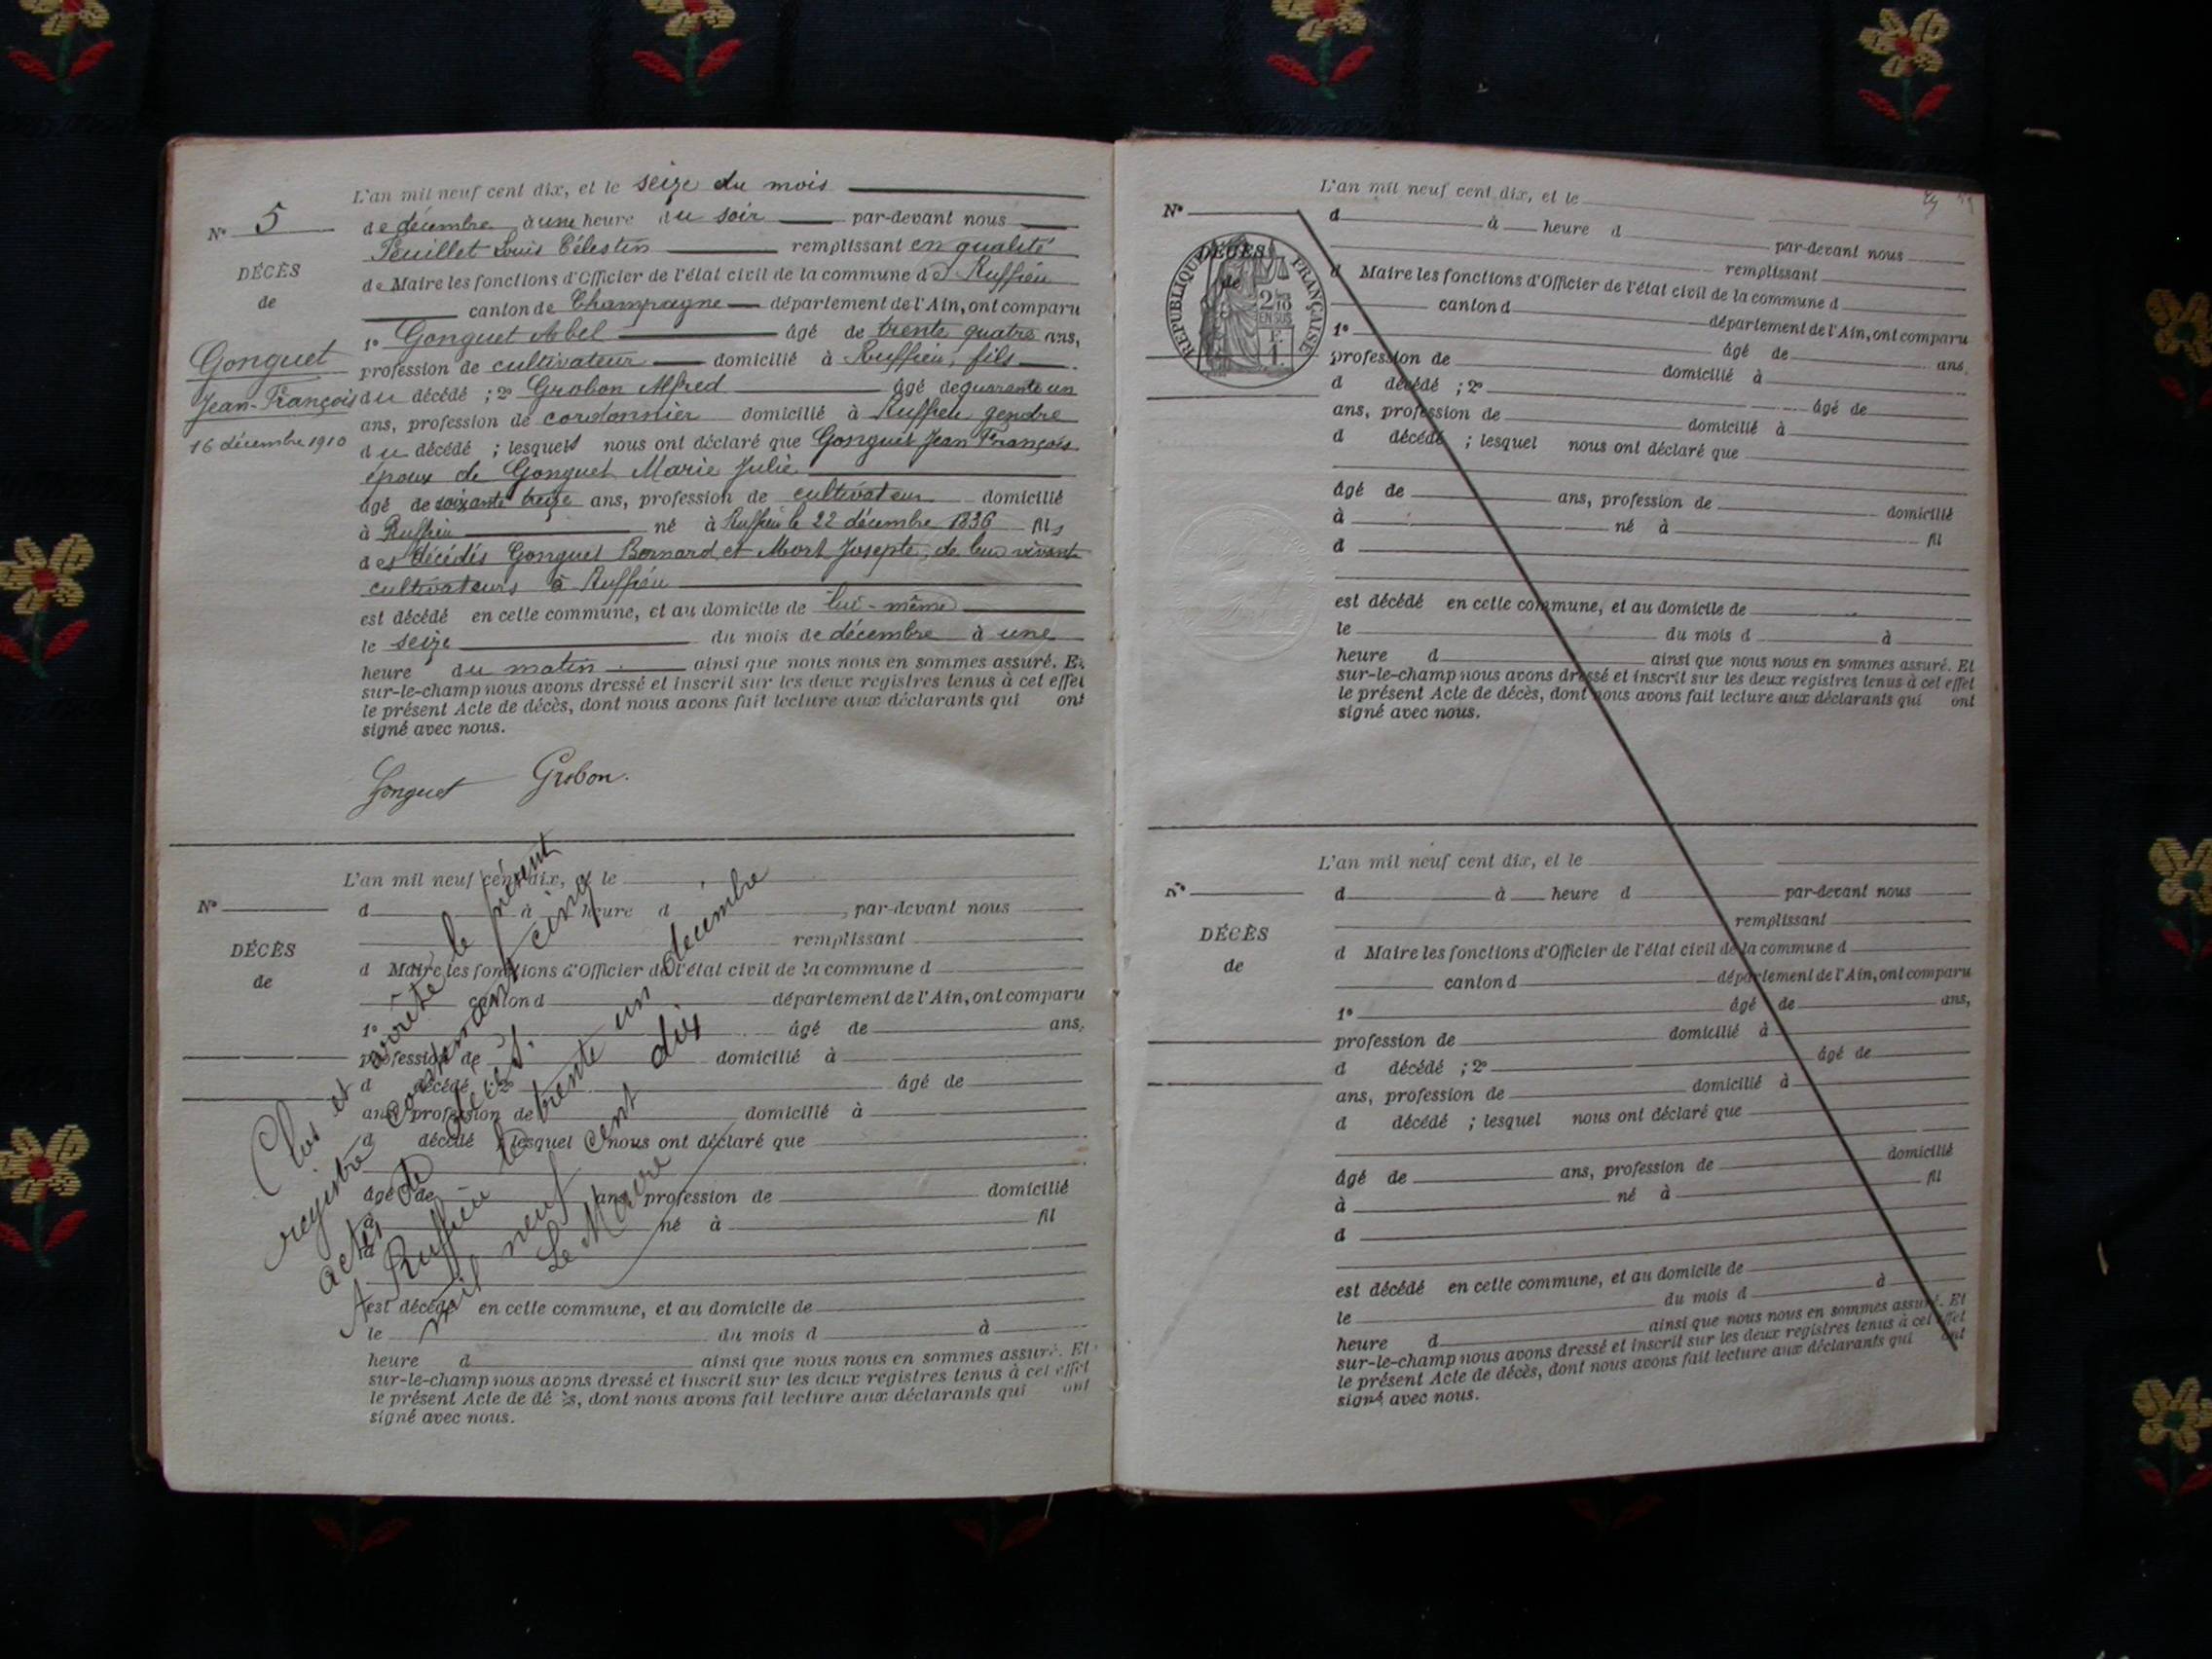 L'an mil neuf cent dix, et le seize du mois
N° 5
de décembre à une heure du soir par-devant nous
Feuillet Louis Célestin remplissant en qualité
DÉCÈS
de
de Maire les fonctions d'Officier de l'état civil de la commune de Ruffieu
canton de Champagne département de l'Ain, ont comparu
1° Gonguet Abel âgé de trente quatre ans,
profession de cultivateur domicilié à Ruffieu, fils
Gonguet
Jean-François
16 décembre 1910
du décédé ; 2° Grobon Alfred âgé de quarante un
ans, profession de cordonnier domicilié à Ruffieu gendre
du décédé ; lesquels nous ont déclaré que Gonguet Jean François
époux de Gonguet Marie Julie
âgé de soixante treize ans, profession de cultivateur domicilié
à Ruffieu né à Ruffieu le 22 décembre 1836 fils
des décédés Gonguet Bernard et Mort Josepte, de leur vivant
cultivateurs à Ruffieu
est décédé en cette commune, et au domicile de lui-même
le seize du mois de décembre à une
heure du matin ainsi que nous nous en sommes assuré. Et
sur-le-champ nous avons dressé et inscrit sur les deux registres tenus à cet effet
le présent Acte de décès, dont nous avons fait lecture aux déclarants qui ont
signé avec nous.
Gonguet Grobon.
L'an mil neuf cent dix, et le
N°
d à heure d par-devant nous
remplissant
DÉCÈS
de
d Maire les fonctions d'Officier de l'état civil de la commune d
canton d département de l'Ain, ont comparu
1° âgé de ans,
profession de domicilié à
d décédé ; 2° âgé de
ans, profession de domicilié à
d décédé ; lesquel nous ont déclaré que
âgé de ans, profession de domicilié
à né à fil
d
est décédé en cette commune, et au domicile de
le du mois d à
heure d ainsi que nous nous en sommes assuré. Et
sur-le-champ nous avons dressé et inscrit sur les deux registres tenus à cet effet
le présent Acte de décès, dont nous avons fait lecture aux déclarants qui ont
signé avec nous.
Clos et arrêté le présent
registre contenant cinq
actes de décès.
A Ruffieu le trente un décembre
mil neuf cent dix
Le Maire
L'an mil neuf cent dix, et le
N°
d à heure d par-devant nous
remplissant
DÉCÈS
de
RÉPUBLIQUE FRANÇAISE
2/10
EN SUS
F.
1.
d Maire les fonctions d'Officier de l'état civil de la commune d
canton d département de l'Ain, ont comparu
1° âgé de ans,
profession de domicilié à
d décédé ; 2° âgé de
ans, profession de domicilié à
d décédé ; lesquel nous ont déclaré que
âgé de ans, profession de domicilié
à né à fil
d
est décédé en cette commune, et au domicile de
le du mois d à
heure d ainsi que nous nous en sommes assuré. Et
sur-le-champ nous avons dressé et inscrit sur les deux registres tenus à cet effet
le présent Acte de décès, dont nous avons fait lecture aux déclarants qui ont
signé avec nous.
L'an mil neuf cent dix, et le
N°
d à heure d par-devant nous
remplissant
DÉCÈS
de
d Maire les fonctions d'Officier de l'état civil de la commune d
canton d département de l'Ain, ont comparu
1° âgé de ans,
profession de domicilié à
d décédé ; 2° âgé de
ans, profession de domicilié à
d décédé ; lesquel nous ont déclaré que
âgé de ans, profession de domicilié
à né à fil
d
est décédé en cette commune, et au domicile de
le du mois d à
heure d ainsi que nous nous en sommes assuré. Et
sur-le-champ nous avons dressé et inscrit sur les deux registres tenus à cet effet
le présent Acte de décès, dont nous avons fait lecture aux déclarants qui ont
signé avec nous.